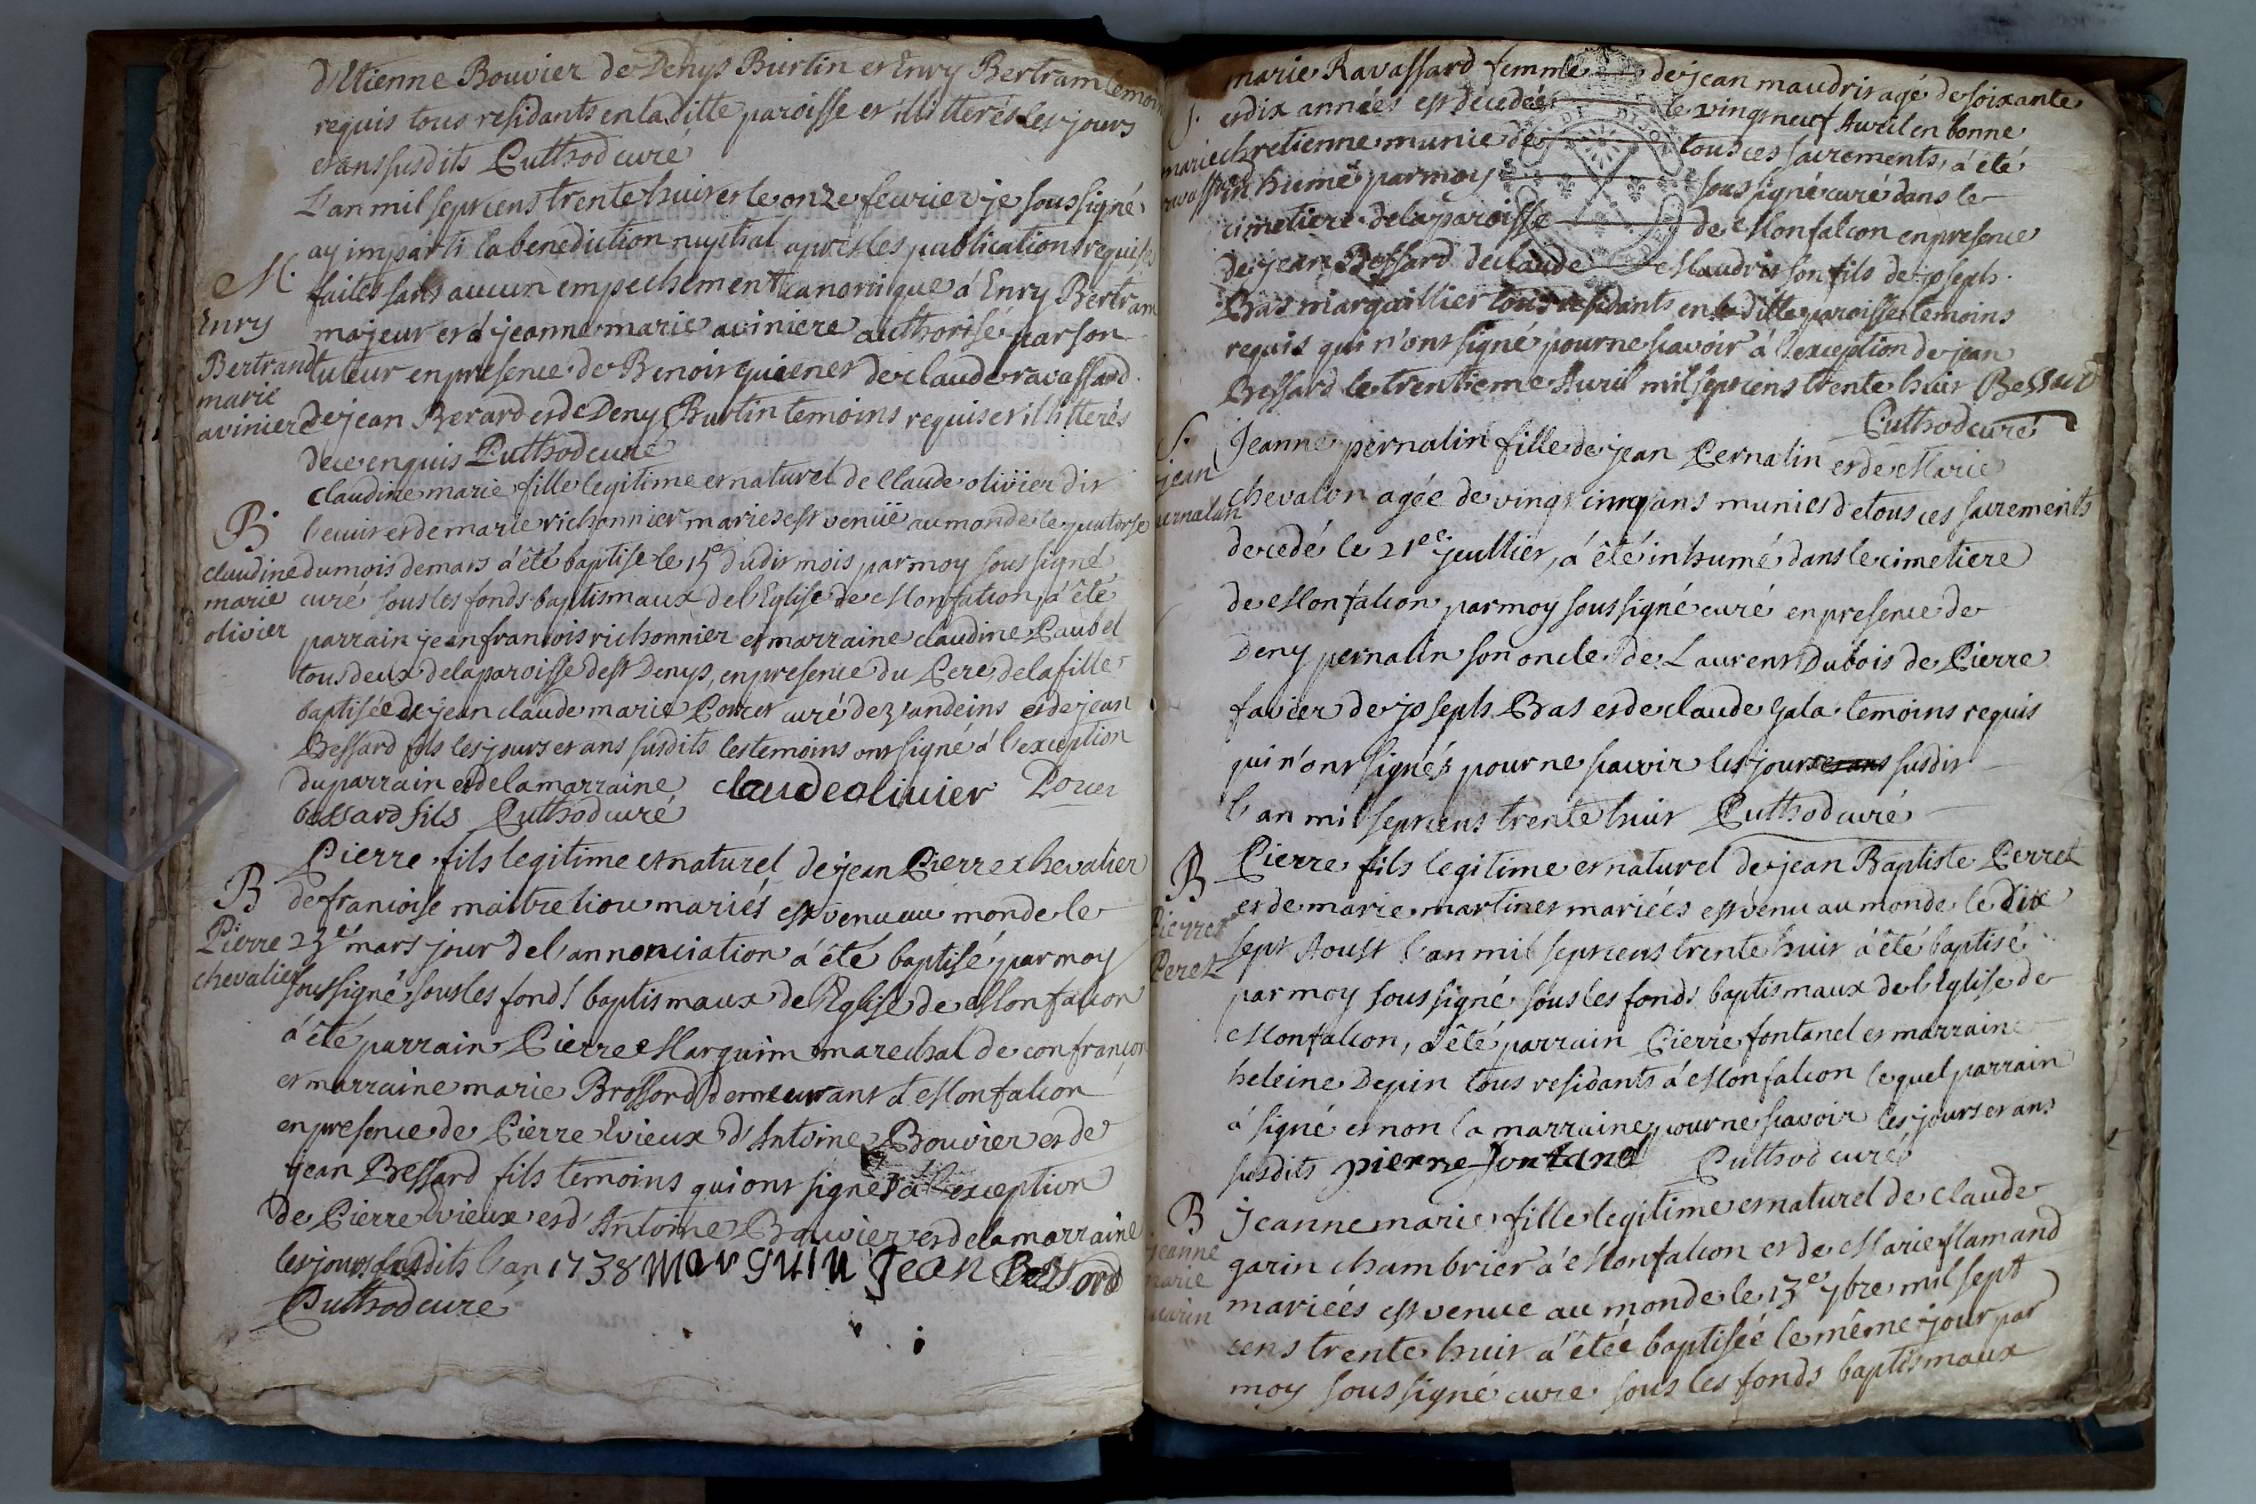 d'Etienne Bouvier de Denys Burtin et Enry Bertram temoins
requis tous residants en la ditte paroisse et illitterés les jours
et ans susdits Puthod curé
L'an mil sept cens trente huit et le onze fevrier je soussigné
ay imparti la benediction nuptial aprés les publications requises
M.
faites sans aucun empechement canonique á Enry Bertram
Enry
majeur et á jeanne marie aviniere authorisé par son
Bertrand
tuteur en presence de Benoit de claude ravassard
marie
aviniere
de jean Berard et de Deny Burtin temoins requis et illitterés
de ce enquis Puthod curé
claudine marie fille legitime et naturel de Claude olivier dit
B.
et de marie richonnier mariés est venüe au monde le quatorse
claudine
du mois de mars á été baptise le 15e dudit mois par moy soussigné
marie
curé sous les fonds baptismaux de l'Eglise de Monfalcon, á été
olivier
parrain jean francois richonnier et marraine claudine Caubet
tous deux de la paroisse de st Denys, en presence du Pere de la fille
baptisée de jean claude marie Poncet curé de vandeins et de jean
Bessard fils les jours et ans susdits les temoins ont signé á l'exception
du parrain et de la marraine claude olivier Poncet
bessard fils Puthod curé
Pierre fils legitime et naturel de jean Pierre chevalier
B
de francoise maitre mariés est venu au monde le
Pierre
mars jour de l'annonciation á été baptisé par moy
chevalier
soussigné sous les fonds baptismaux de l'Eglise de Monfalcon
á été parrain Pierre Marguin marechal de confrançon
et marraine marie Brossard demeurant á Monfalcon
en presence de Pierre vieux d'Antoine Bouvier et de
jean Bessard fils temoins qui ont signés á l'exception
de Pierre vieux et d'Antoine Bouvier et de la marraine
les jours susdits l'an 1738 marguin jean Bessard
Puthod curé
marie Ravassard femme de jean maudrit agé de soixante
S.
et dix années est décedée le vingt neuf Avril en bonne
marie
chretienne munie de tous ces sacrements, á été
ravassard
inhumé par moy soussigné curé dans le
cimetiere de la paroisse de Monfalcon en presence
de jean Bessard de claude Maudrit son fils de joseph
Bas marguillier tous residants en la ditte paroisse temoins
requis qui n'ont signé pour ne scavoir á l'exception de jean
Bessard le trentieme Avril mil sept cens trente huit Bessard
Puthod curé
S.
Jeanne pernalin fille de jean Pernalin et de Marie
jean
pernalin
chevalon agée de vingt cinq ans munies de tous ces sacrements
decedé le 21e jeullier, á été inhumé dans le cimetiere
de Monfalcon par moy soussigné curé en presence de
Deny pernalin son oncle de Laurent Dubois de Pierre
favier de joseph Bas et de claude Gala temoins requis
qui n'ont signés pour ne scavoir les jours et ans susdit
l'an mil sept cens trente huit Puthod curé
Pierre fils legitime et naturel de jean Baptiste Perret
B
et de marie martinet mariées est venu au monde le dix
Pierre
sept Aoust l'an mil sept cens trente huit á été baptisé
Peret
par moy soussigné sous les fonds baptismaux de l'Eglise de
Monfalcon, á été parrain Pierre fontanel et marraine
heleine Depin tous residants á Monfalcon lequel parrain
á signé et non la marraine pour ne scavoir les jours et ans
susdits pierre fontanel Puthod curé
B
Jeanne marie fille legitime et naturel de claude
jeanne
garin chambrier á Monfalcon et de Marie flamand
marie
mariées est venue au monde le 13e 7bre mil sept
garin
cens trente huit á étée baptisée le même jour par
moy soussigné curé sous les fonds baptismaux